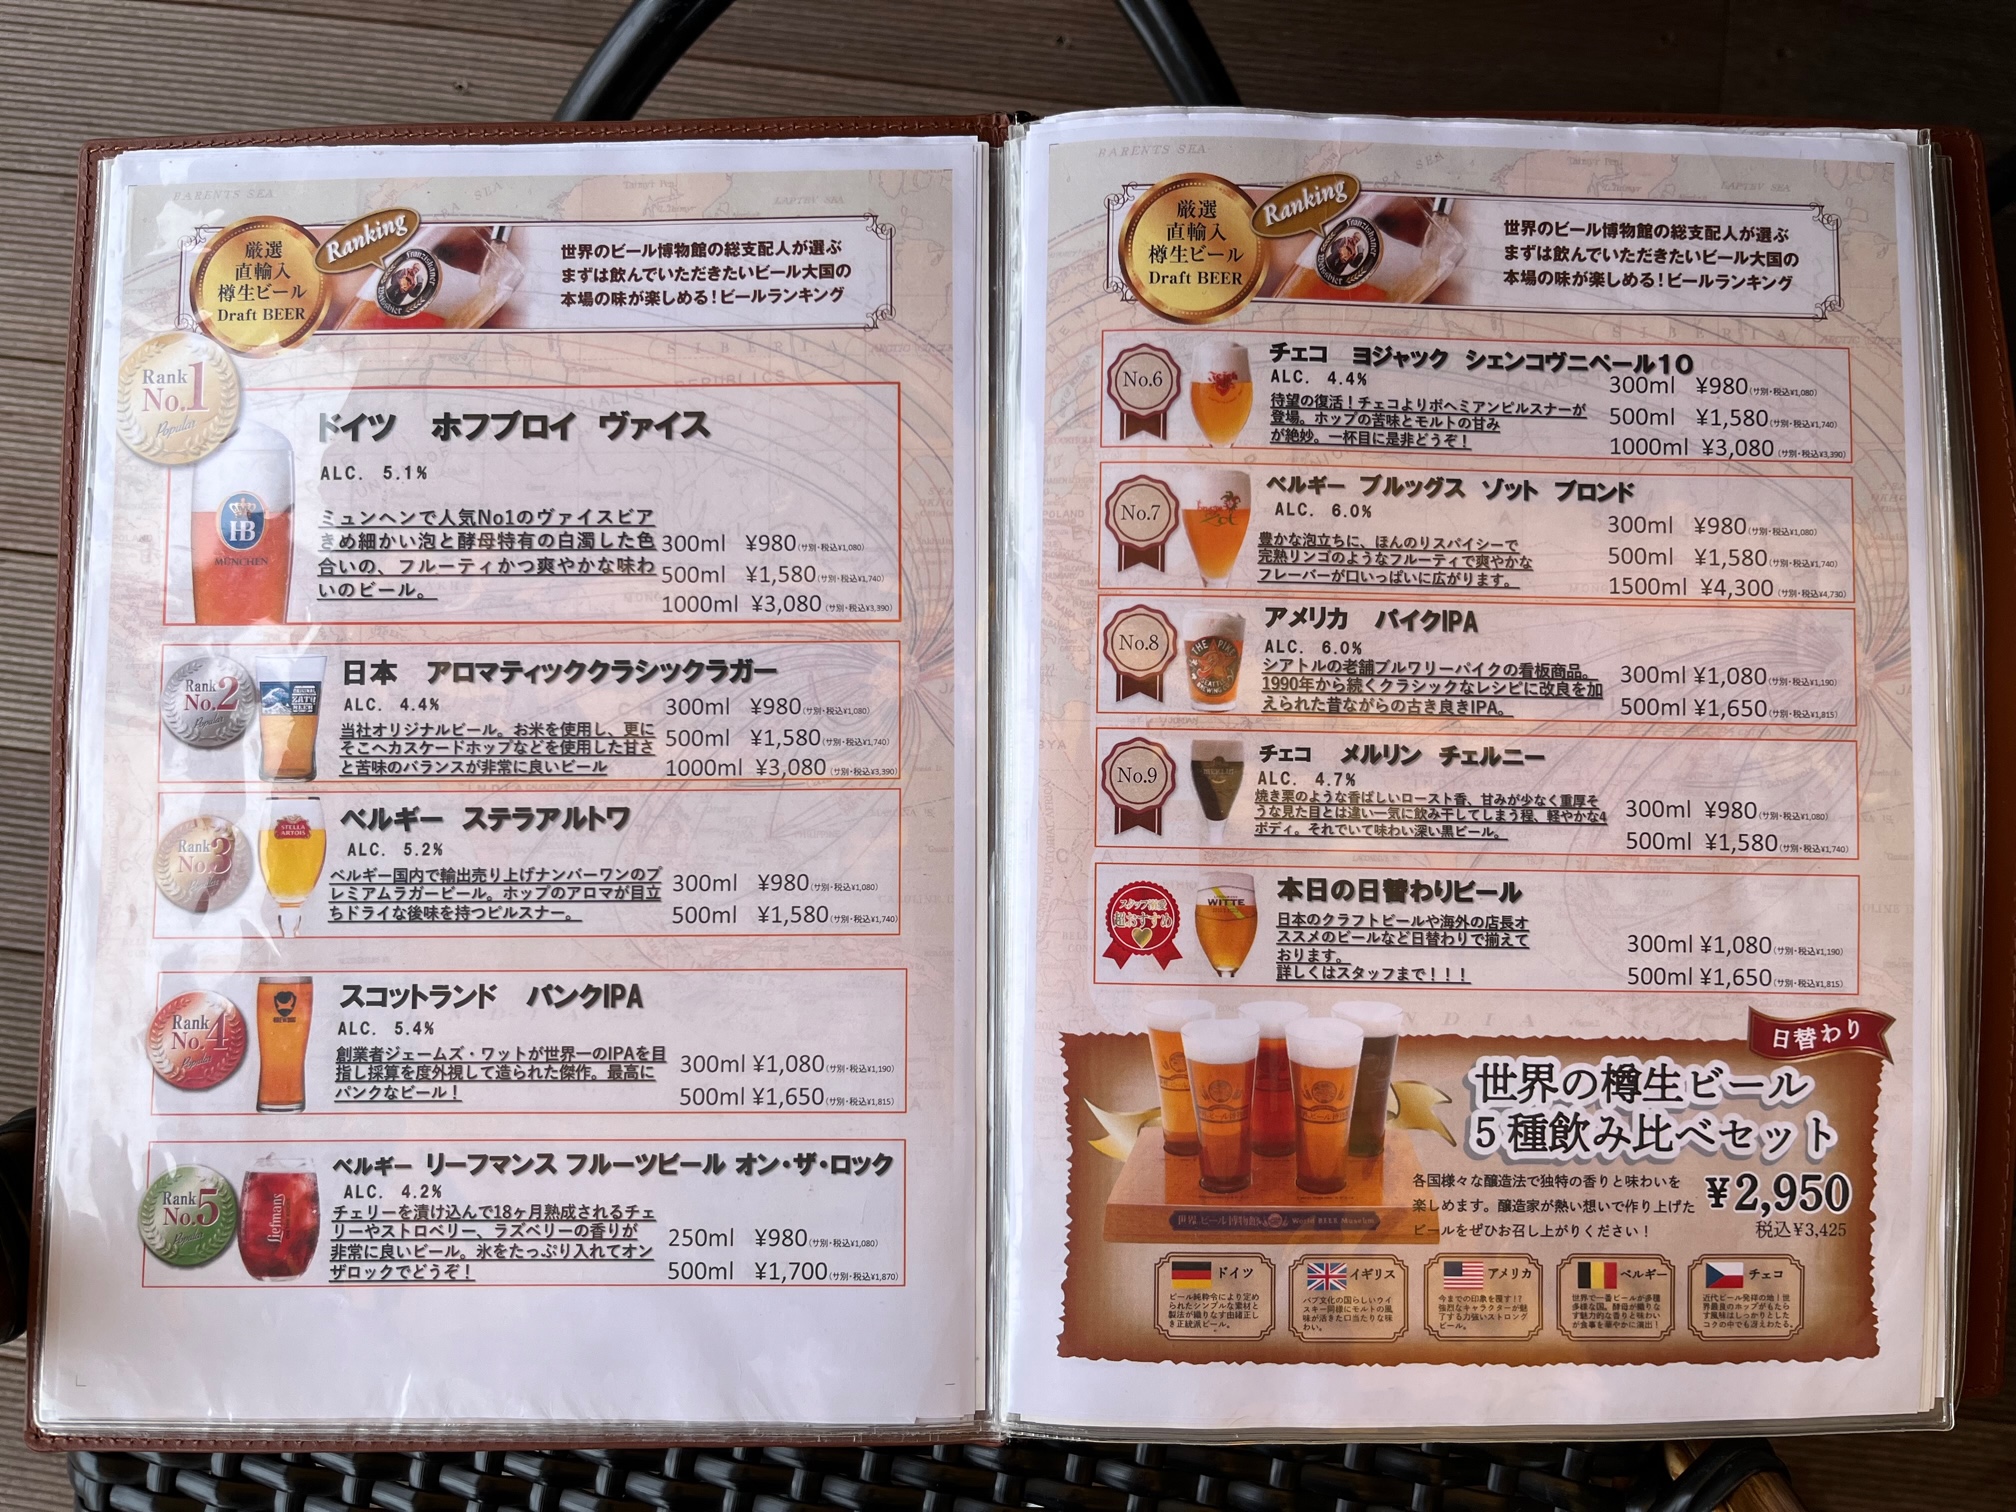 厳選
直輸入
樽生ビール
Draft BEER
Ranking
世界のビール博物館の総支配人が選ぶ
まずは飲んでいただきたいビール大国の
本場の味が楽しめる！ビールランキング
Rank
No.1
Popular
HB
MÜNCHEN
ドイツ　ホフブロイ　ヴァイス
ALC. 5.1%
ミュンヘンで人気No1のヴァイスビア
きめ細かい泡と酵母特有の白濁した色
合いの、フルーティかつ爽やかな味わ
いのビール。
300ml ¥980(サ別・税込¥1,080)
500ml ¥1,580(サ別・税込¥1,740)
1000ml ¥3,080(サ別・税込¥3,390)
Rank
No.2
Popular
日本　アロマティッククラシックラガー
ALC. 4.4%
当社オリジナルビール。お米を使用し、更に
そこへカスケードホップなどを使用した甘さ
と苦味のバランスが非常に良いビール
300ml ¥980(サ別・税込¥1,080)
500ml ¥1,580(サ別・税込¥1,740)
1000ml ¥3,080(サ別・税込¥3,390)
Rank
No.3
Popular
STELLA
ARTOIS
ベルギー　ステラアルトワ
ALC. 5.2%
ベルギー国内で輸出売り上げナンバーワンのプ
レミアムラガービール。ホップのアロマが目立
ちドライな後味を持つピルスナー。
300ml ¥980(サ別・税込¥1,080)
500ml ¥1,580(サ別・税込¥1,740)
Rank
No.4
Popular
スコットランド　パンクIPA
ALC. 5.4%
創業者ジェームズ・ワットが世界一のIPAを目
指し採算を度外視して造られた傑作。最高に
パンクなビール！
300ml ¥1,080(サ別・税込¥1,190)
500ml ¥1,650(サ別・税込¥1,815)
Rank
No.5
Popular
Liefmans
ベルギー　リーフマンス フルーツビール オン・ザ・ロック
ALC. 4.2%
チェリーを漬け込んで18ヶ月熟成されるチェ
リーやストロベリー、ラズベリーの香りが
非常に良いビール。氷をたっぷり入れてオン
ザロックでどうぞ！
250ml ¥980(サ別・税込¥1,080)
500ml ¥1,700(サ別・税込¥1,870)
厳選
直輸入
樽生ビール
Draft BEER
Ranking
世界のビール博物館の総支配人が選ぶ
まずは飲んでいただきたいビール大国の
本場の味が楽しめる！ビールランキング
No.6
チェコ　ヨジャック　シェンコヴニペール10
ALC. 4.4%
待望の復活！チェコよりボヘミアンピルスナーが
登場。ホップの苦味とモルトの甘み
が絶妙。一杯目に是非どうぞ！
300ml ¥980(サ別・税込¥1,080)
500ml ¥1,580(サ別・税込¥1,740)
1000ml ¥3,080(サ別・税込¥3,390)
No.7
ベルギー　ブルッグス　ゾット　ブロンド
ALC. 6.0%
豊かな泡立ちに、ほんのりスパイシーで
完熟リンゴのようなフルーティで爽やかな
フレーバーが口いっぱいに広がります。
300ml ¥980(サ別・税込¥1,080)
500ml ¥1,580(サ別・税込¥1,740)
1500ml ¥4,300(サ別・税込¥4,730)
No.8
THE PIKE
アメリカ　パイクIPA
ALC. 6.0%
シアトルの老舗ブルワリーパイクの看板商品。
1990年から続くクラシックなレシピに改良を加
えられた昔ながらの古き良きIPA。
300ml ¥1,080(サ別・税込¥1,190)
500ml ¥1,650(サ別・税込¥1,815)
No.9
チェコ　メルリン　チェルニー
ALC. 4.7%
焼き栗のような香ばしいロースト香、甘みが少なく重厚そ
うな見た目とは違い一気に飲み干してしまう程、軽やかな4
ボディ。それでいて味わい深い黒ビール。
300ml ¥980(サ別・税込¥1,080)
500ml ¥1,580(サ別・税込¥1,740)
超おすすめ
WITTE
本日の日替わりビール
日本のクラフトビールや海外の店長オ
ススメのビールなど日替わりで揃えて
おります。
詳しくはスタッフまで！！！
300ml ¥1,080(サ別・税込¥1,190)
500ml ¥1,650(サ別・税込¥1,815)
日替わり
世界の樽生ビール
5種飲み比べセット
各国様々な醸造法で独特の香りと味わいを
楽しめます。醸造家が熱い想いで作り上げた
ビールをぜひお召し上がりください！
¥2,950
税込¥3,425
世界のビール博物館 World BEER Museum
ドイツ
ビール純粋令により定め
られたシンプルな素材と
製法が織りなす由緒正し
き正統派ビール。
イギリス
パブ文化の国らしいウイ
スキー同様にモルトの風
味が活きた口当たりな味
わい。
アメリカ
今までの印象を覆す！？
強烈なキャラクターが魅
了する力強いストロング
ビール。
ベルギー
世界で一番ビールが多種
多様な国。酵母が織りな
す魅力的な香りと味わい
が食事を華やかに演出！
チェコ
近代ビール発祥の地！世
界最良のホップがもたら
す風味はしっかりとした
コクの中でも冴えわたる。